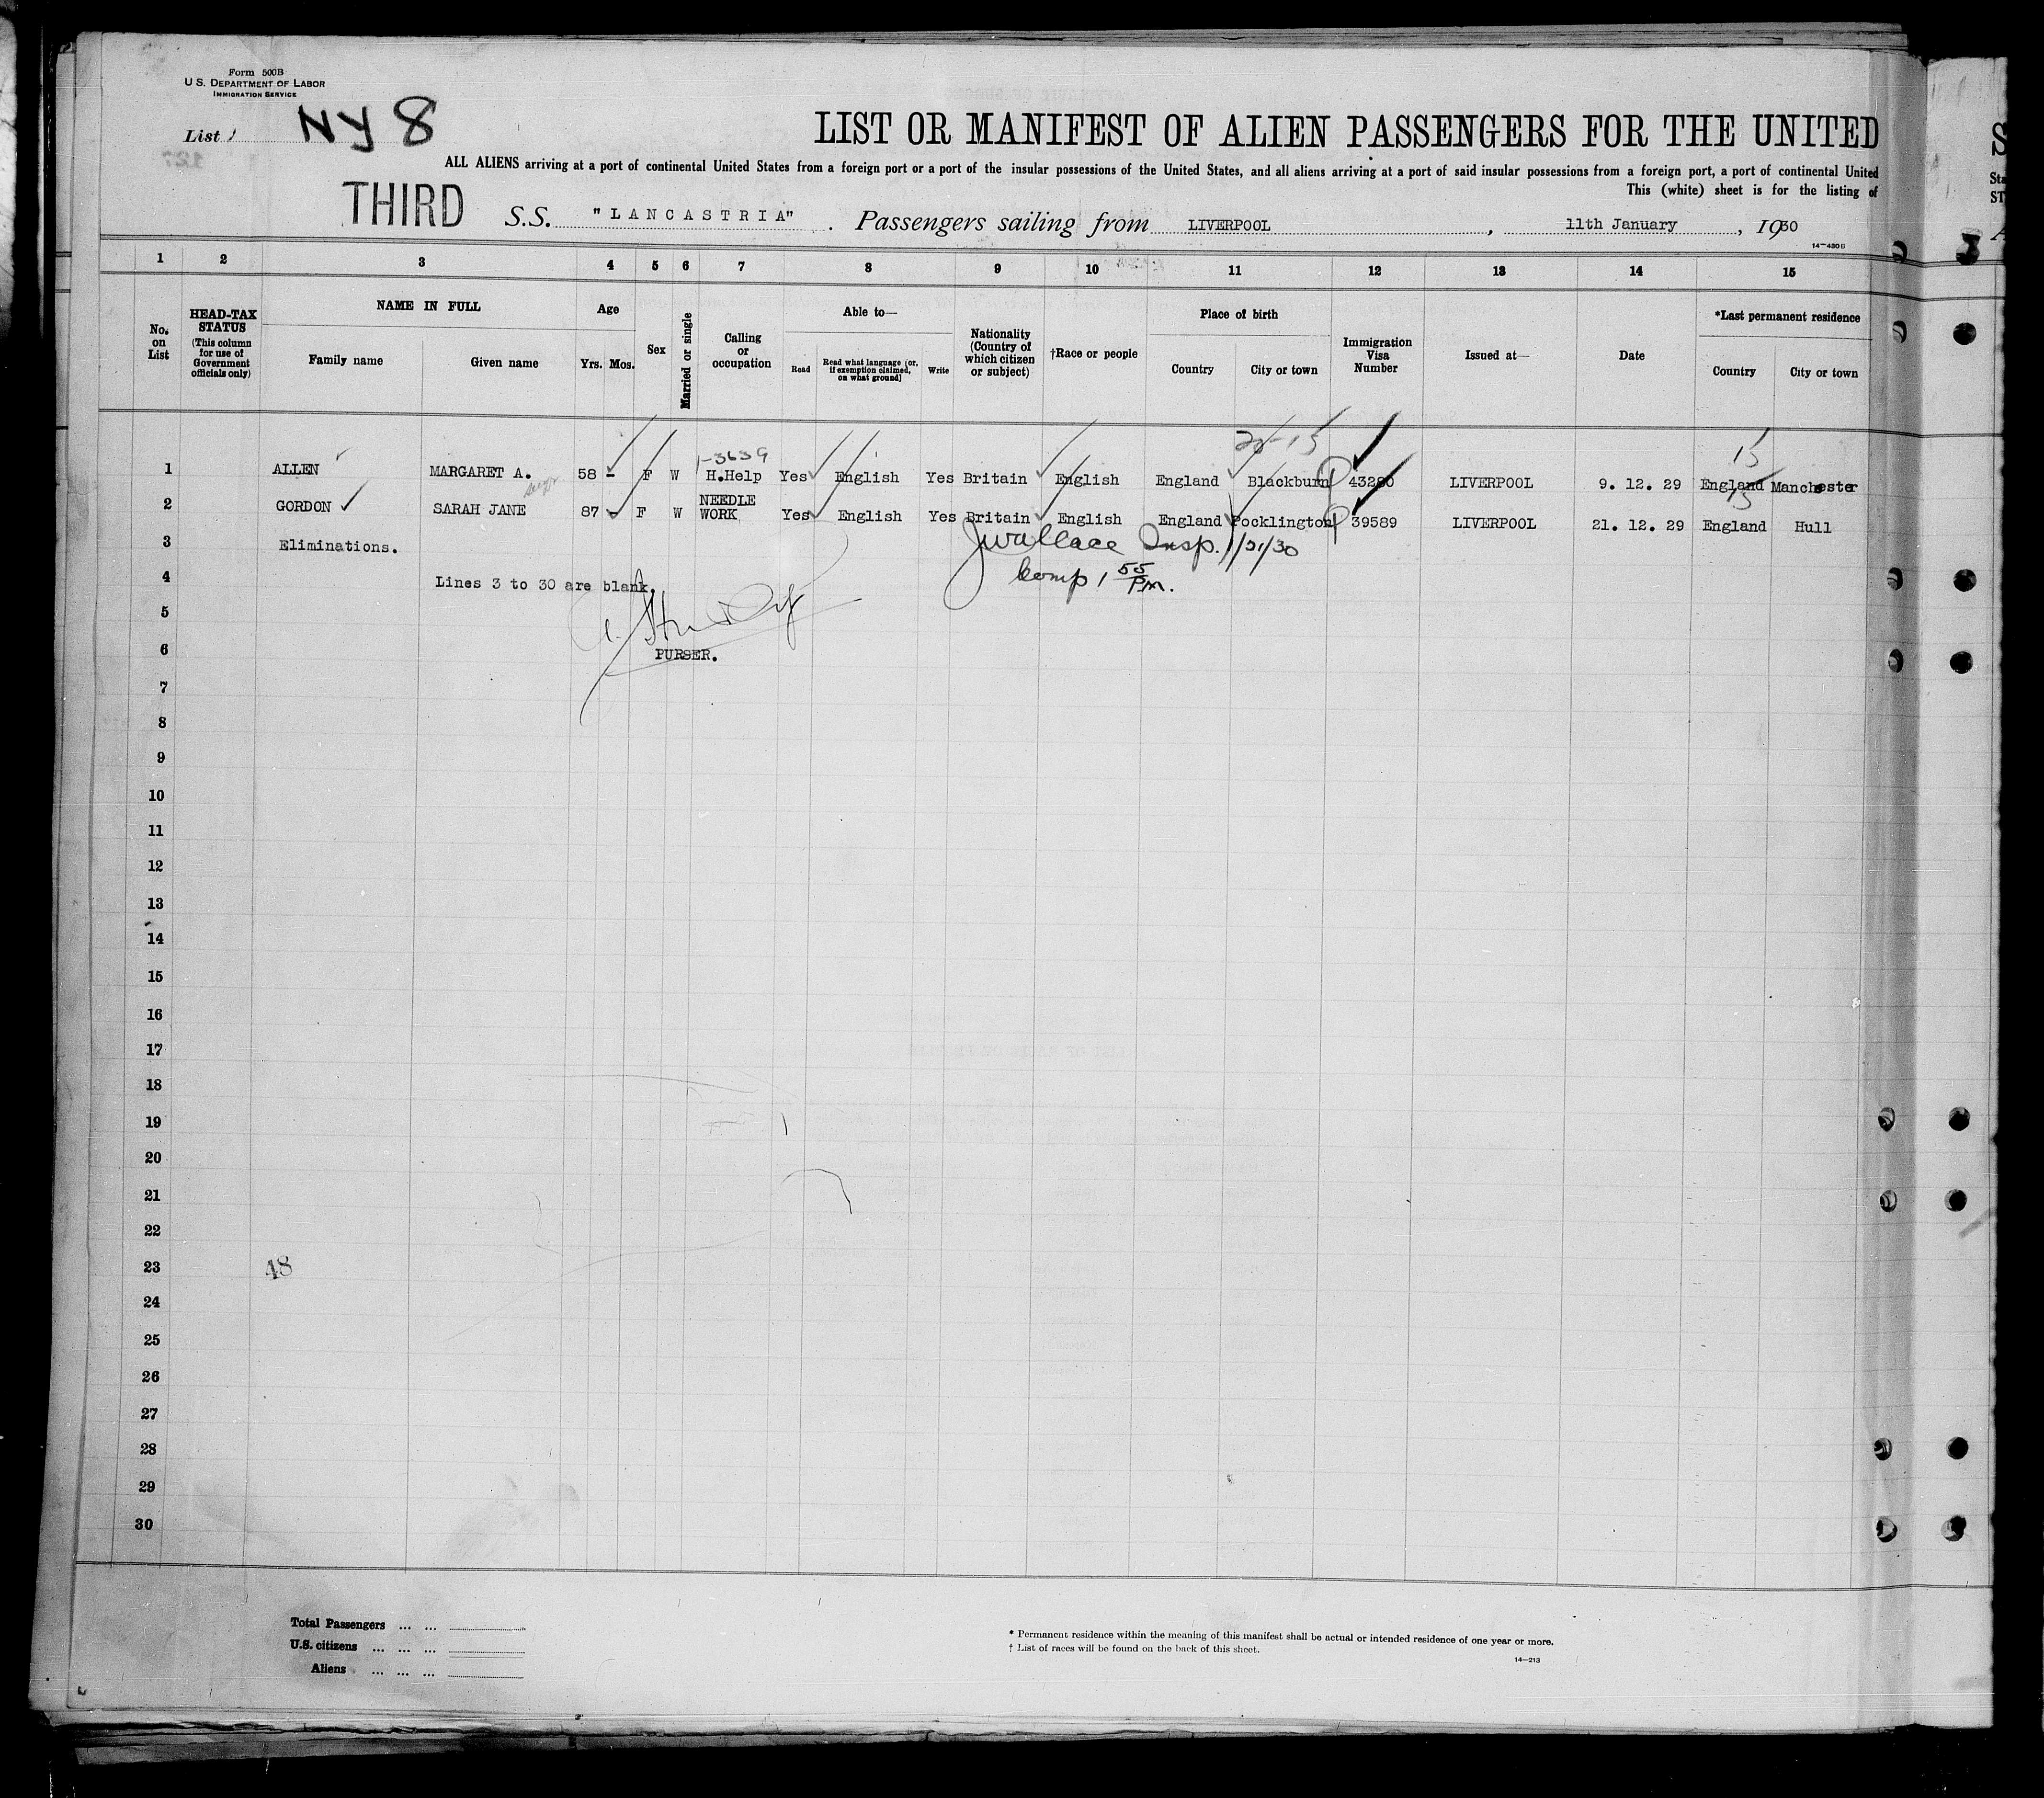 Form 500B
U S. DEPARTMENT OF LABOR
IMMIGRATION SERVICE
List 1 NY 8
LIST OR MANIFEST OF ALIEN PASSENGERS FOR THE UNITED
ALL ALIENS arriving at a port of continental United States from a foreign port or a port of the insular possessions of the United States, and all aliens arriving at a port of said insular possessions from a foreign port, a port of continental United
This (white) sheet is for the listing of
THIRD S.S. "LANCASTRIA" . Passengers sailing from LIVERPOOL , 11th January , 1930
14-430B
1 2 3 4 5 6 7 8 9 10 11 12 13 14 15
No. on List
HEAD-TAX STATUS (This column for use of Government officials only)
NAME IN FULL
Family name Given name
Age
Yrs. Mos.
Sex
Married or single
Calling or occupation
Able to—
Read Read what language (or, if exemption claimed, on what ground) Write
Nationality (Country of which citizen or subject)
†Race or people
Place of birth
Country City or town
Immigration Visa Number
Issued at—
Date
*Last permanent residence
Country City or town
1-3639 15
1 ALLEN MARGARET A. 58 - F W H.Help Yes English Yes Britain English England Blackburn 43280 LIVERPOOL 9. 12. 29 England Manchester
15
2 GORDON SARAH JANE 87 - F W NEEDLE WORK Yes English Yes Britain English England Pocklington 39589 LIVERPOOL 21. 12. 29 England Hull
3 Eliminations. JWallace Insp. 1/21/30
4 Lines 3 to 30 are blank. Comp 1 55 Pm.
5
6 PURSER.
7
8
9
10
11
12
13
14
15
16
17
18
19
20
21
22
23 48
24
25
26
27
28
29
30
Total Passengers ... ...
U.S. citizens ... ... ...
Aliens ... ... ...
* Permanent residence within the meaning of this manifest shall be actual or intended residence of one year or more.
† List of races will be found on the back of this sheet.
14-213